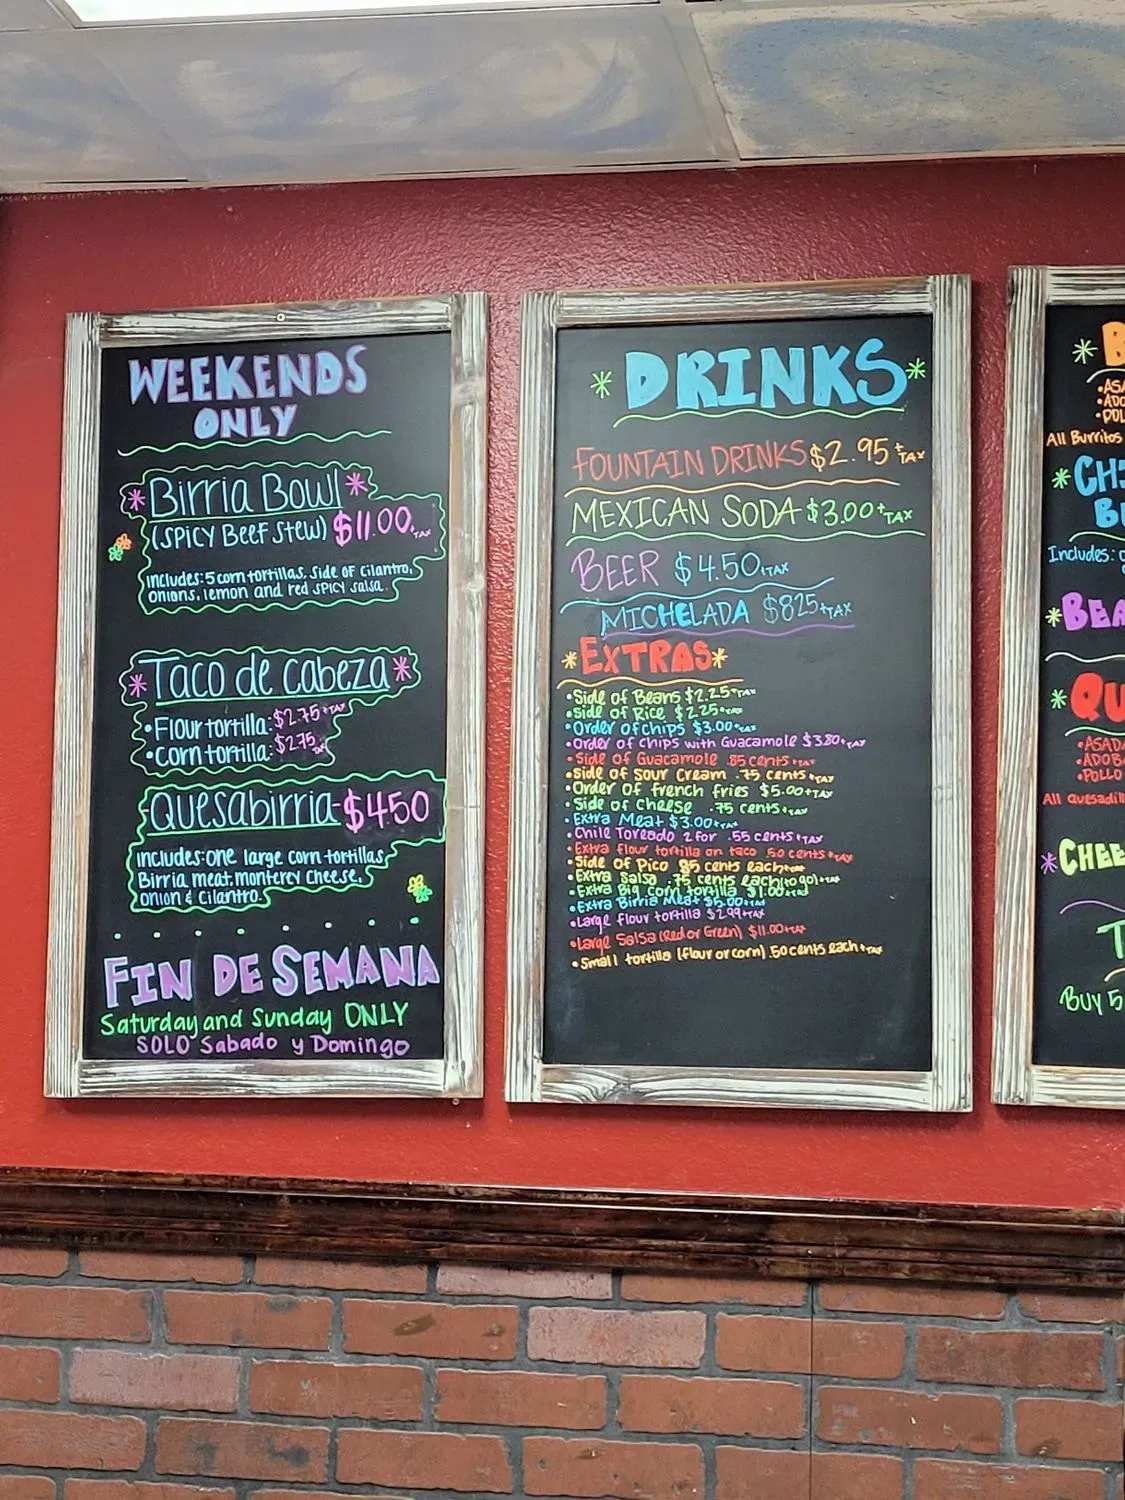 WEEKENDS
ONLY
*Birria Bowl*
(Spicy Beef Stew) $11.00+TAX
Includes: 5 corn tortillas, side of cilantro,
onions, lemon and red spicy salsa.
*Taco de Cabeza*
•Flour tortilla: $2.75+TAX
•Corn tortilla: $2.75
Quesabirria-$450
Includes: one large corn tortillas
Birria meat, monterey cheese,
onion & cilantro.
FIN DE SEMANA
Saturday and Sunday ONLY
SOLO Sabado y Domingo
*DRINKS*
FOUNTAIN DRINKS $2.95+TAX
MEXICAN SODA $3.00+TAX
BEER $4.50+TAX
MICHELADA $825+TAX
*EXTRAS*
•Side of Beans $2.25+TAX
•Side of Rice $2.25+TAX
•Order of chips $3.00+TAX
•Order of chips with Guacamole $3.80+TAX
•Side of Guacamole .85 cents+TAX
•Side of Sour Cream .75 cents+TAX
•Order of french fries $5.00+TAX
•Side of Cheese .75 cents+TAX
•Extra Meat $3.00+TAX
•Chile Toreado 2 for .55 cents+TAX
•Extra flour tortilla on taco .50 cents+TAX
•Side of Pico 85 cents each+TAX
•Extra Salsa .75 cents each(to go)+TAX
•Extra Big corn tortilla $1.00+TAX
•Extra Birria Meat $5.00+TAX
•Large flour tortilla $2.99+TAX
•Large Salsa (Red or Green) $11.00+TAX
•Small tortilla (flour or corn) .50 cents each+TAX
*B
•ASA
•ADO
•POL
All Burritos
*CH
B
Includes:
*BEA
*QU
•ASAD
•ADOB
•POLLO
All quesadill
*CHEE
T
Buy 5